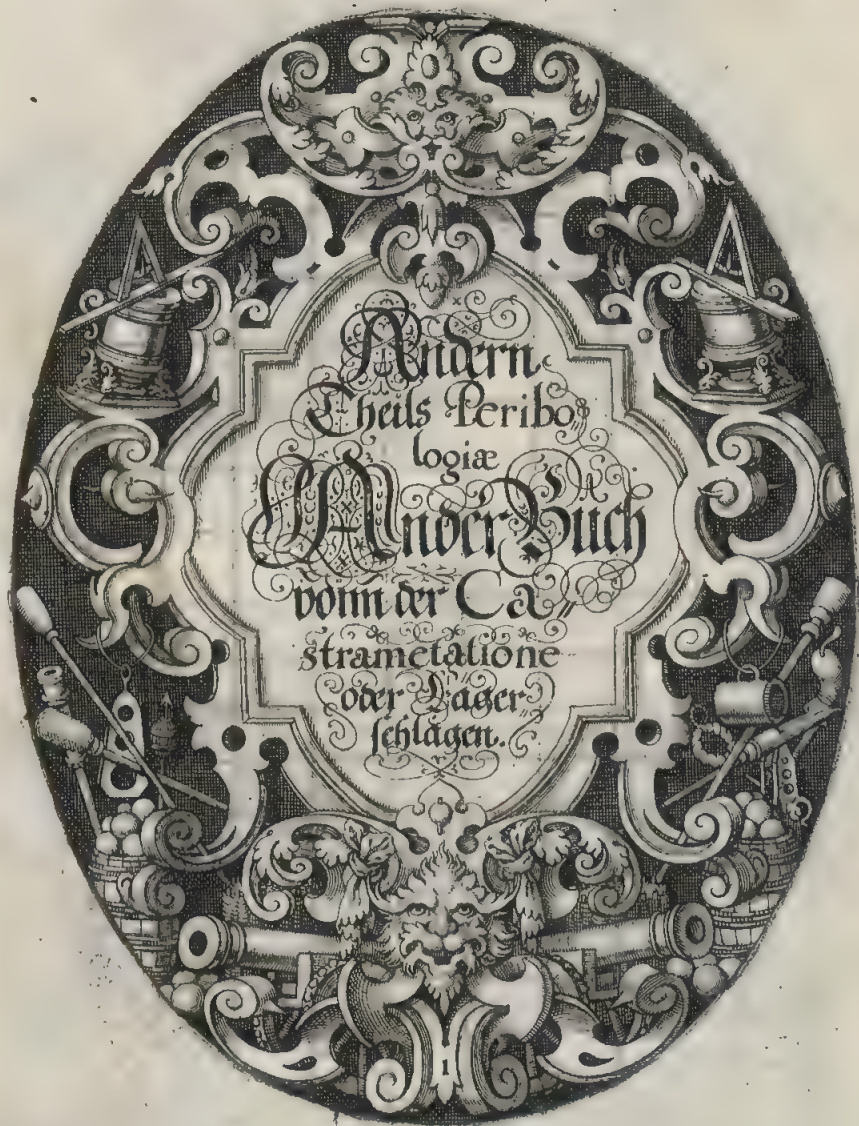 Andern
Theils Peribo
logiæ
Ander Buch
vonn der Ca
strametatione
oder Läger
schlagen.
1